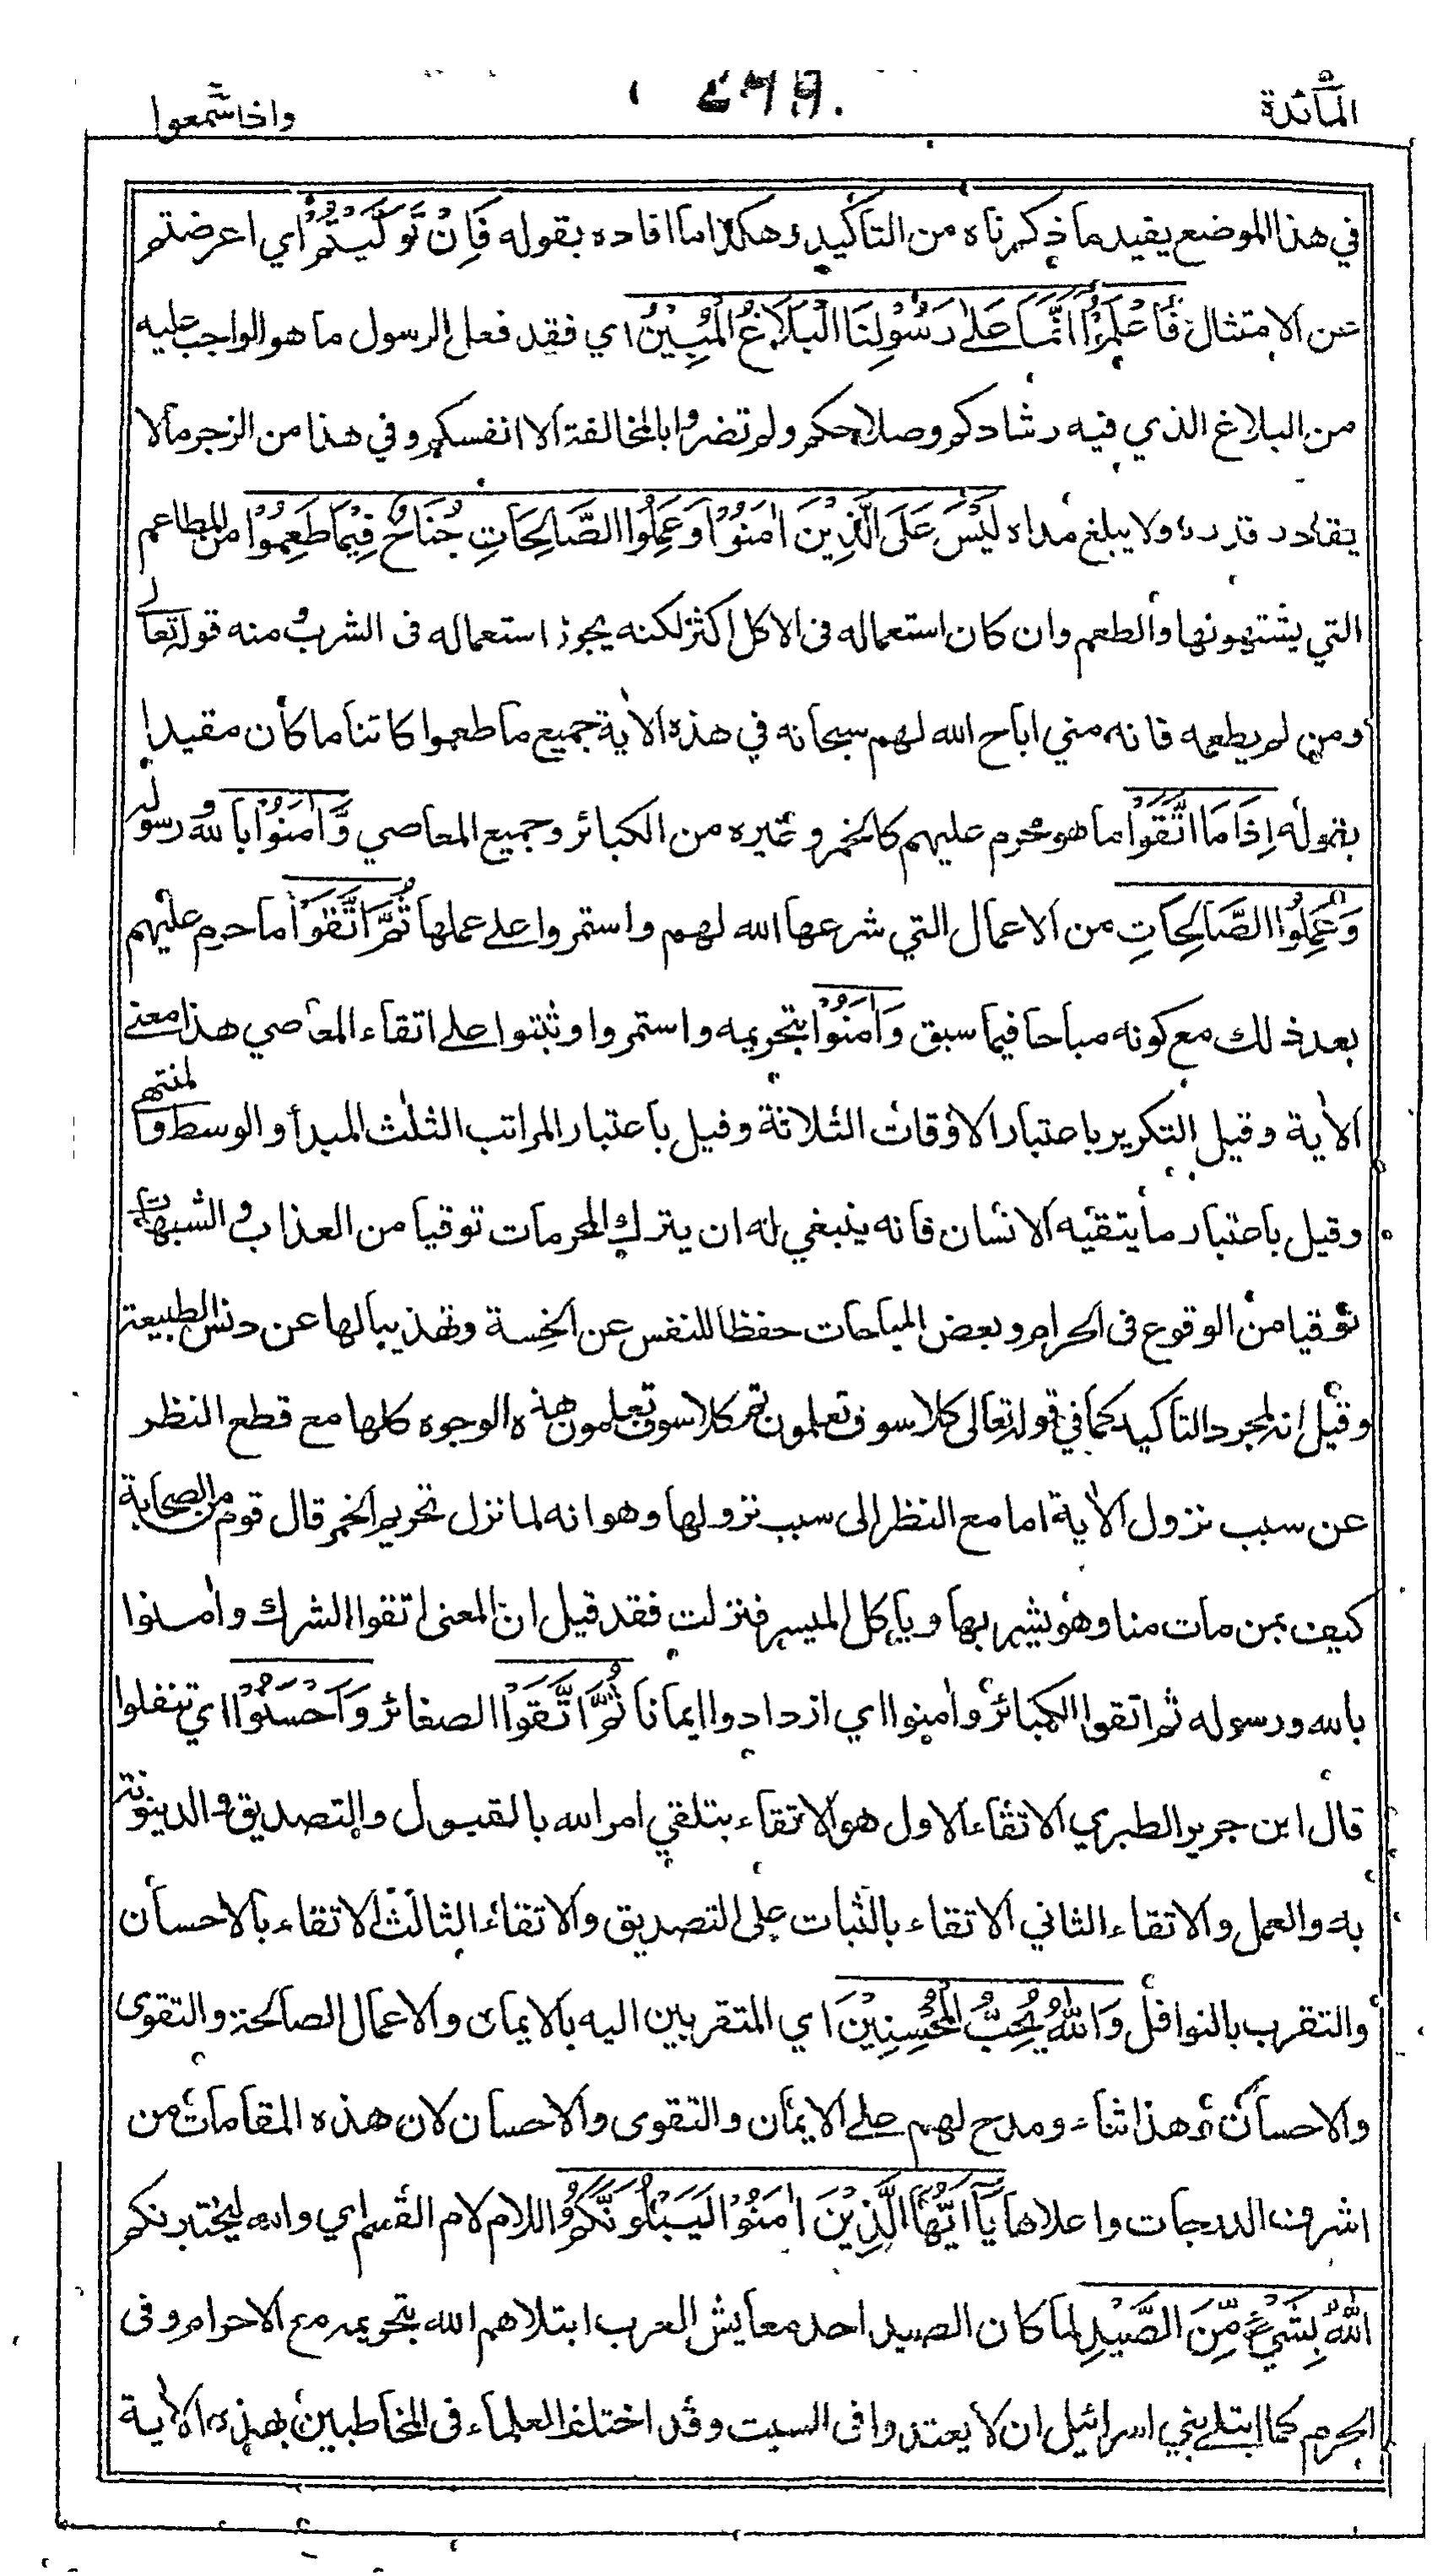 المآئدة
واذا سمعوا
في هذا الموضع يفيد ما ذكرناه من التأكيد وهكذا ما افاده بقوله فَاِنْ تَوَلَّيْتُمْ اي اعرضتم
عن الامتثال فَاعْلَمُوْا اَنَّمَا عَلٰى رَسُوْلِنَا الْبَلَاغُ الْمُبِيْنُ اي فقد فعل الرسول ما هو الواجب عليه
من البلاغ الذي فيه رشادكم وصلاحكم ولم تضروا بالمخالفة الا انفسكم وفي هذا من الزجر مالا
يقادر قدره ولا يبلغ مداه لَيْسَ عَلَى الَّذِيْنَ اٰمَنُوْا وَعَمِلُوا الصَّالِحَاتِ جُنَاحٌ فِيْمَا طَعِمُوْا من المطاعم
التي يشتهونها والطعم وان كان استعماله فى الاكل اكثر لكنه يجوز استعماله فى الشرب ومنه قوله تعالى
ومن لم يطعمه فانه مني اباح الله لهم سبحانه في هذه الاٰية جميع ما طعموا كائنا ما كان مقيدا
بقوله اِذَا مَا اتَّقَوْا ما هو محرم عليهم كالخمر وغيره من الكبائر وجميع المعاصي وَّاٰمَنُوْا بالله ورسوله
وَعَمِلُوا الصَّالِحَاتِ من الاعمال التي شرعها الله لهم واستمروا على عملها ثُمَّ اتَّقَوْا ما حرم عليهم
بعد ذلك مع كونه مباحا فيما سبق وَاٰمَنُوْا بتحريمه واستمروا وثبتوا على اتقاء المعاصي هذا معنى
الاٰية وقيل التكرير باعتبار الاوقات الثلاثة وقيل باعتبار المراتب الثلٰث المبدأ والوسط والمنتهى
وقيل باعتبار ما يتقيه الانسان فانه ينبغي له ان يترك المحرمات توقيا من العذاب والشبهات
توقيا من الوقوع فى الحرام وبعض المباحات حفظا للنفس عن الخسة وتهذيبا لها عن دنس الطبيعة
وقيل انه لمجرد التاكيد كما في قوله تعالى كلا سوف تعلمون ثم كلا سوف تعلمون هذه الوجوه كلها مع قطع النظر
عن سبب نزول الاٰية اما مع النظر الى سبب نزولها وهو انه لما نزل تحريم الخمر قال قوم من الصحابة
كيف بمن مات منا وهو يشربها وياكل الميسر فنزلت فقد قيل ان المعنى اتقوا الشرك واٰمنوا
بالله ورسوله ثم اتقوا الكبائر واٰمنوا اي ازدادوا ايمانا ثُمَّ اتَّقَوْا الصغائر وَاَحْسَنُوْا اي تنفلوا
قال ابن جرير الطبري الاتقاء الاول هو الاتقاء بتلقي امر الله بالقبول والتصديق والدينونة
به والعمل والاتقاء الثاني الاتقاء بالثبات على التصديق والاتقاء الثالث الاتقاء بالاحسان
والتقرب بالنوافل وَاللّٰهُ يُحِبُّ الْمُحْسِنِيْنَ اي المتقربين اليه بالايمان والاعمال الصالحة والتقوى
والاحسان وهذا ثناء ومدح لهم على الايمان والتقوى والاحسان لان هذه المقامات من
اشرف الدرجات واعلاها يَآ اَيُّهَا الَّذِيْنَ اٰمَنُوْا لَيَبْلُوَنَّكُمُ اللام لام القسم اي والله ليختبرنكم
اللّٰهُ بِشَيْءٍ مِّنَ الصَّيْدِ لما كان الصيد احد معايش العرب ابتلاهم الله بتحريمه مع الاحرام وفى
الحرم كما ابتلى بني اسرائيل ان لا يعتدوا فى السبت وقد اختلف العلماء فى المخاطبين بهذه الاٰية